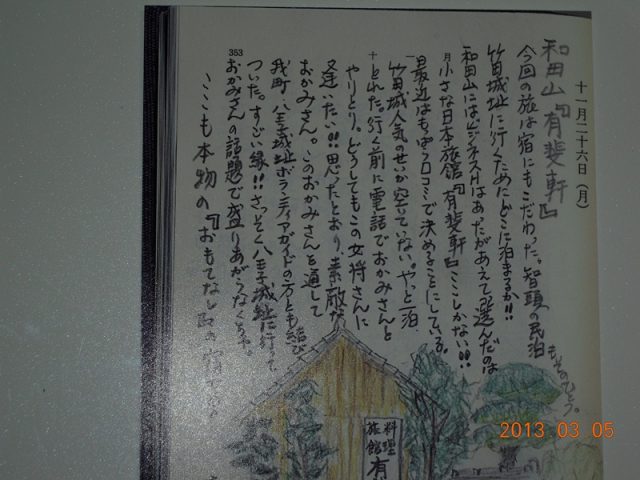 十一月二十六日(月)
和田山『有斐軒』
今回の旅は宿にもこだわった。智頭の民泊
もそのひとつ。
竹田城址に行くためにどこに泊まるか!!
和田山にはビジネスHはあったがあえて選んだのは
小さな日本旅館『有斐軒』ここしかない!!
最近はもっぱら口コミで決めることにしている。
竹田城人気のせいか空いていない。やっと一泊
とれた。行く前に電話でおかみさんと
やりとり。どうしてもこの女将さんに
逢いたい!!思ったとおり、素敵な
おかみさん。このおかみさんを通して
我町・八王子城址ボランティアガイドの方とも結び
ついた。すごい縁!!さっそく八王子城址に行って
おかみさんの話題で盛りあがらなくちゃ。
ここも本物の『おもてなし』の宿
353
料理
旅館
有
2013.03.05